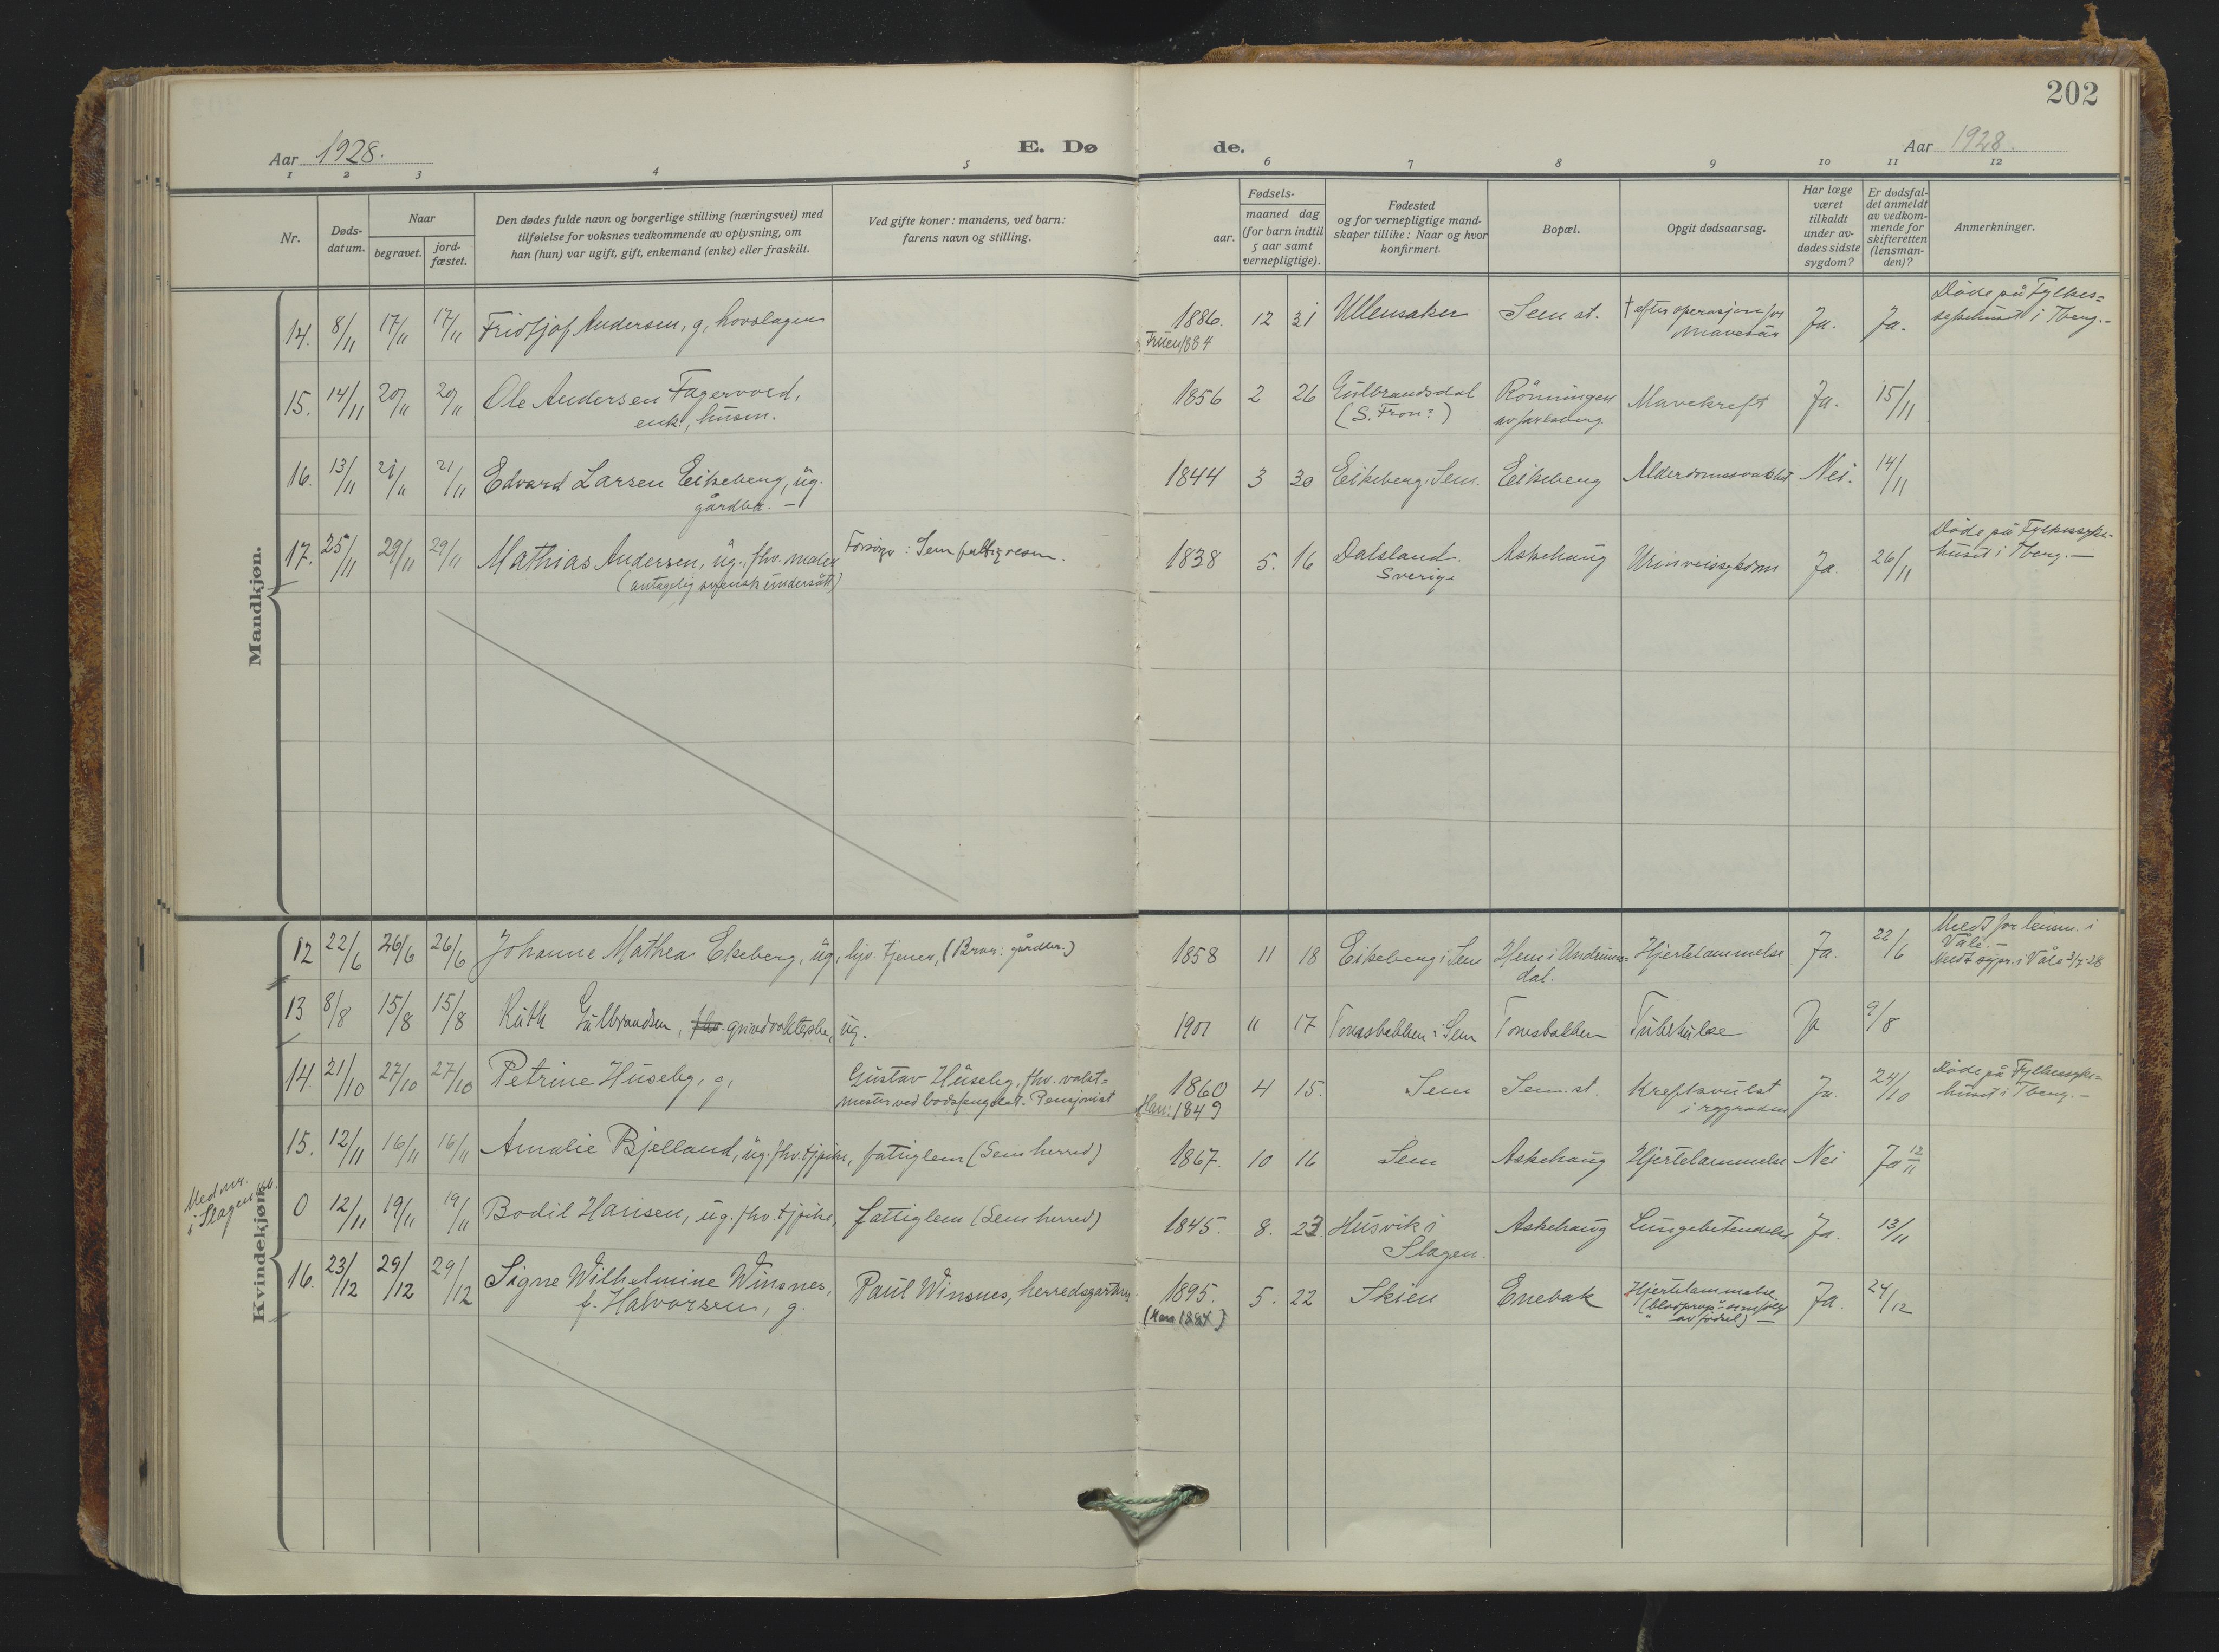 202
Aar 1928.
E. Dø
de.
Aar 1928.
1 2 3 4 5 6 7 8 9 10 11 12
Nr.
Døds-
datum.
Naar
begravet.
jord-
fæstet.
Den dødes fulde navn og borgerlige stilling (næringsvei) med
tilføielse for voksnes vedkommende av oplysning, om
han (hun) var ugift, gift, enkemand (enke) eller fraskilt.
Ved gifte koner: mandens, ved barn:
farens navn og stilling.
Fødsels-
aar.
maaned dag
(for barn indtil
5 aar samt
vernepligtige).
Fødested
og for vernepligtige mand-
skaper tillike: Naar og hvor
konfirmert.
Bopæl.
Opgit dødsaarsag.
Har læge
været
tilkaldt
under av-
dødes sidste
sygdom?
Er dødsfal-
det anmeldt
av vedkom-
mende for
skifteretten
(lensman-
den)?
Anmerkninger.
Mandkjøn.
14. 8/11 17/11 17/11 Fridtjof Andersen, g, hovslager 1886. 12 31 Ullensaker Sem st. † efter operasjon for Ja. Ja. Døde på Fylkes=
Fruen 1884 mavesår sykehuset i Tbeng.-
15. 14/11 20/11 20/11 Ole Andersen Fagervold, 1856 2 26 Gülbrandsdal Rönningen Mavekreft Ja. 15/11
enk., hüsm. (S. Fron?) av Jarlsberg
16. 13/11 21/11 21/11 Edvard Larsen Eikeberg, üg. 1844 3 30 Eikeberg i Sem. Eikeberg Alderdomssvakhet Nei. 14/11
gårdbr. -
17. 25/11 29/11 29/11 Mathias Andersen, üg., fhv. maler Forsørger: Sem fattigvesen. 1838 5. 16 Dalsland Askehaug Urinveissykdom Ja. 26/11 Døde på Fylkessyke-
(antagelig svensk ündersått) Sverige huset i Tbeng. -
Kvindekjøn.
12 22/6 26/6 26/6 Johanne Mathea Ekeberg, üg, hjv. tjener, (Bror: gårdbr.) 1858 11 18 Eikeberg i Sem Hem i Undrums= Hjertelammelse Ja. 22/6 Meldt for lensm. i
dal. Våle. -
Meldt sogpr. i Våle 3/7-28
13 8/8 15/8 15/8 Rüth Gülbrandsen, fhv. grindvokterske, üg. 1901 11 17 Tomsbakken i Sem Tomsbakken Tüberkülose Ja 9/8
14. 21/10 27/10 27/10 Petrine Hüseby, g, Güstav Hüseby, fhv. vakt= 1860 4 15. Sem Sem. st. Kreftsvülst Ja. 24/10 Døde på Fylkessyke=
mester ved bodsfengslet. Pensjonist Man: 1849 i ryggraden huset i Tbeng. -
15. 12/11 16/11 16/11 Amalie Bjelland, üg. fhv. tjpike, fattiglem (Sem herred) 1867. 10 16 Sem Askehaüg Hjertelammelse Nei Ja 12/11
Med nr.
i Slagen
0 12/11 19/11 19/11 Bodil Hansen, üg. fhv. tjpike, fattiglem (Sem herred) 1845. 8. 23. Hüsvik i Askehaüg Lüngebetendelse Ja. 13/11
Slagen.
16. 23/12 29/12 29/12 Signe Wilhelmine Winsnes, Paül Winsnes, herredsgartner. 1895. 5. 22 Skien Enebak Hjertelammelse Ja. 24/12
f. Halvorsen, g. (Man 1884) (blodprop som følge
av fødsel) -